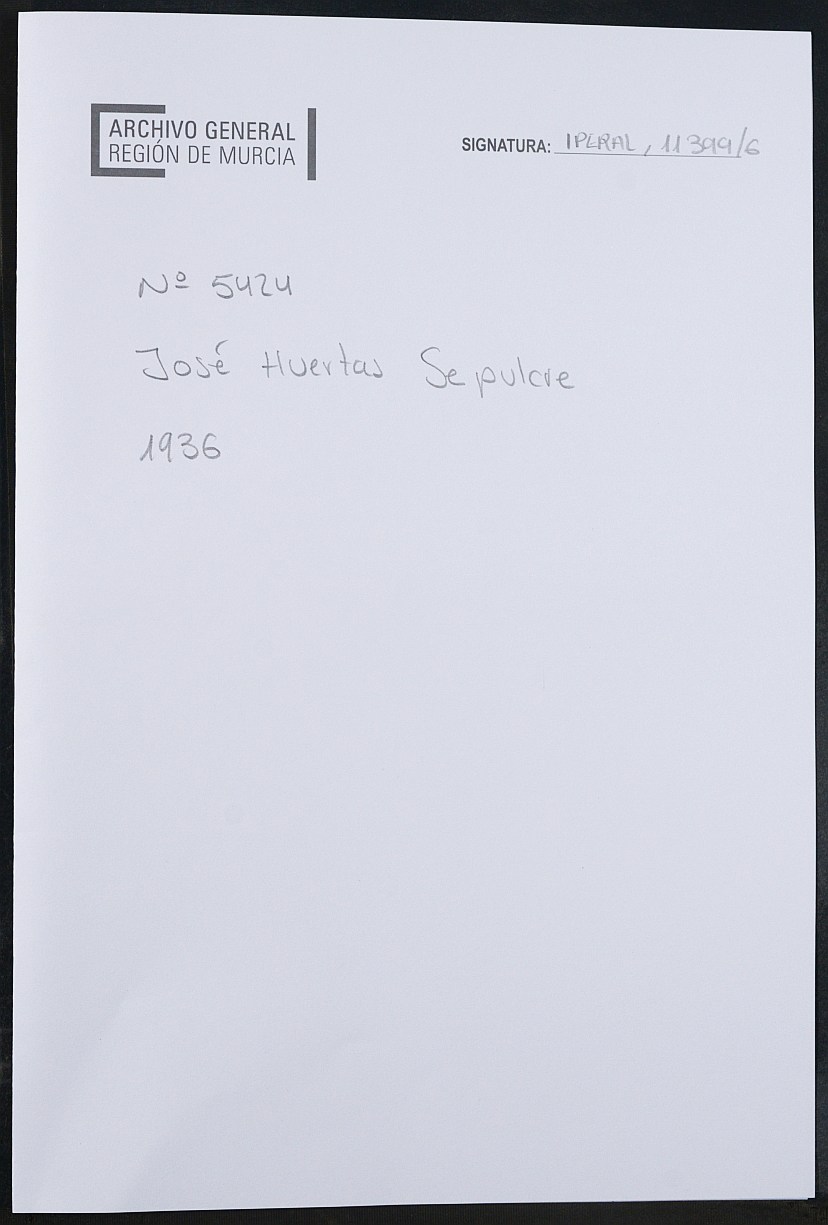 ARCHIVO GENERAL
REGIÓN DE MURCIA
SIGNATURA: IPERAL, 11399/6
Nº 5424
José Huertas Sepulcre
1936